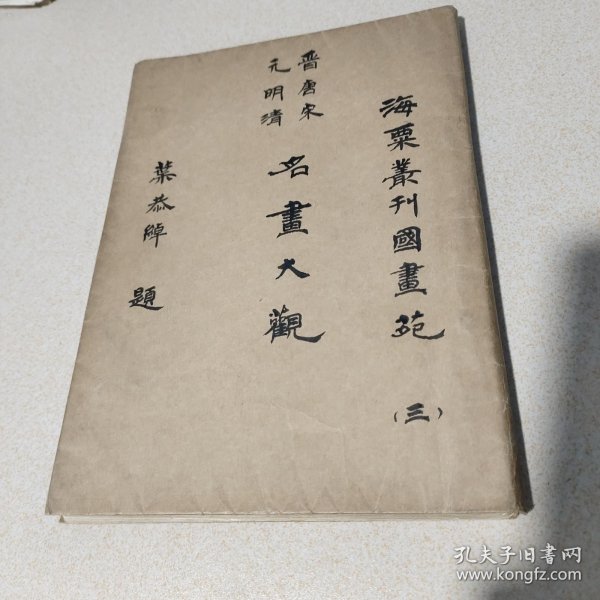 海粟叢刊國畫苑（三）
晋唐宋
元明清
名畫大觀
葉恭綽題
孔夫子旧書网
www.kongfz.com